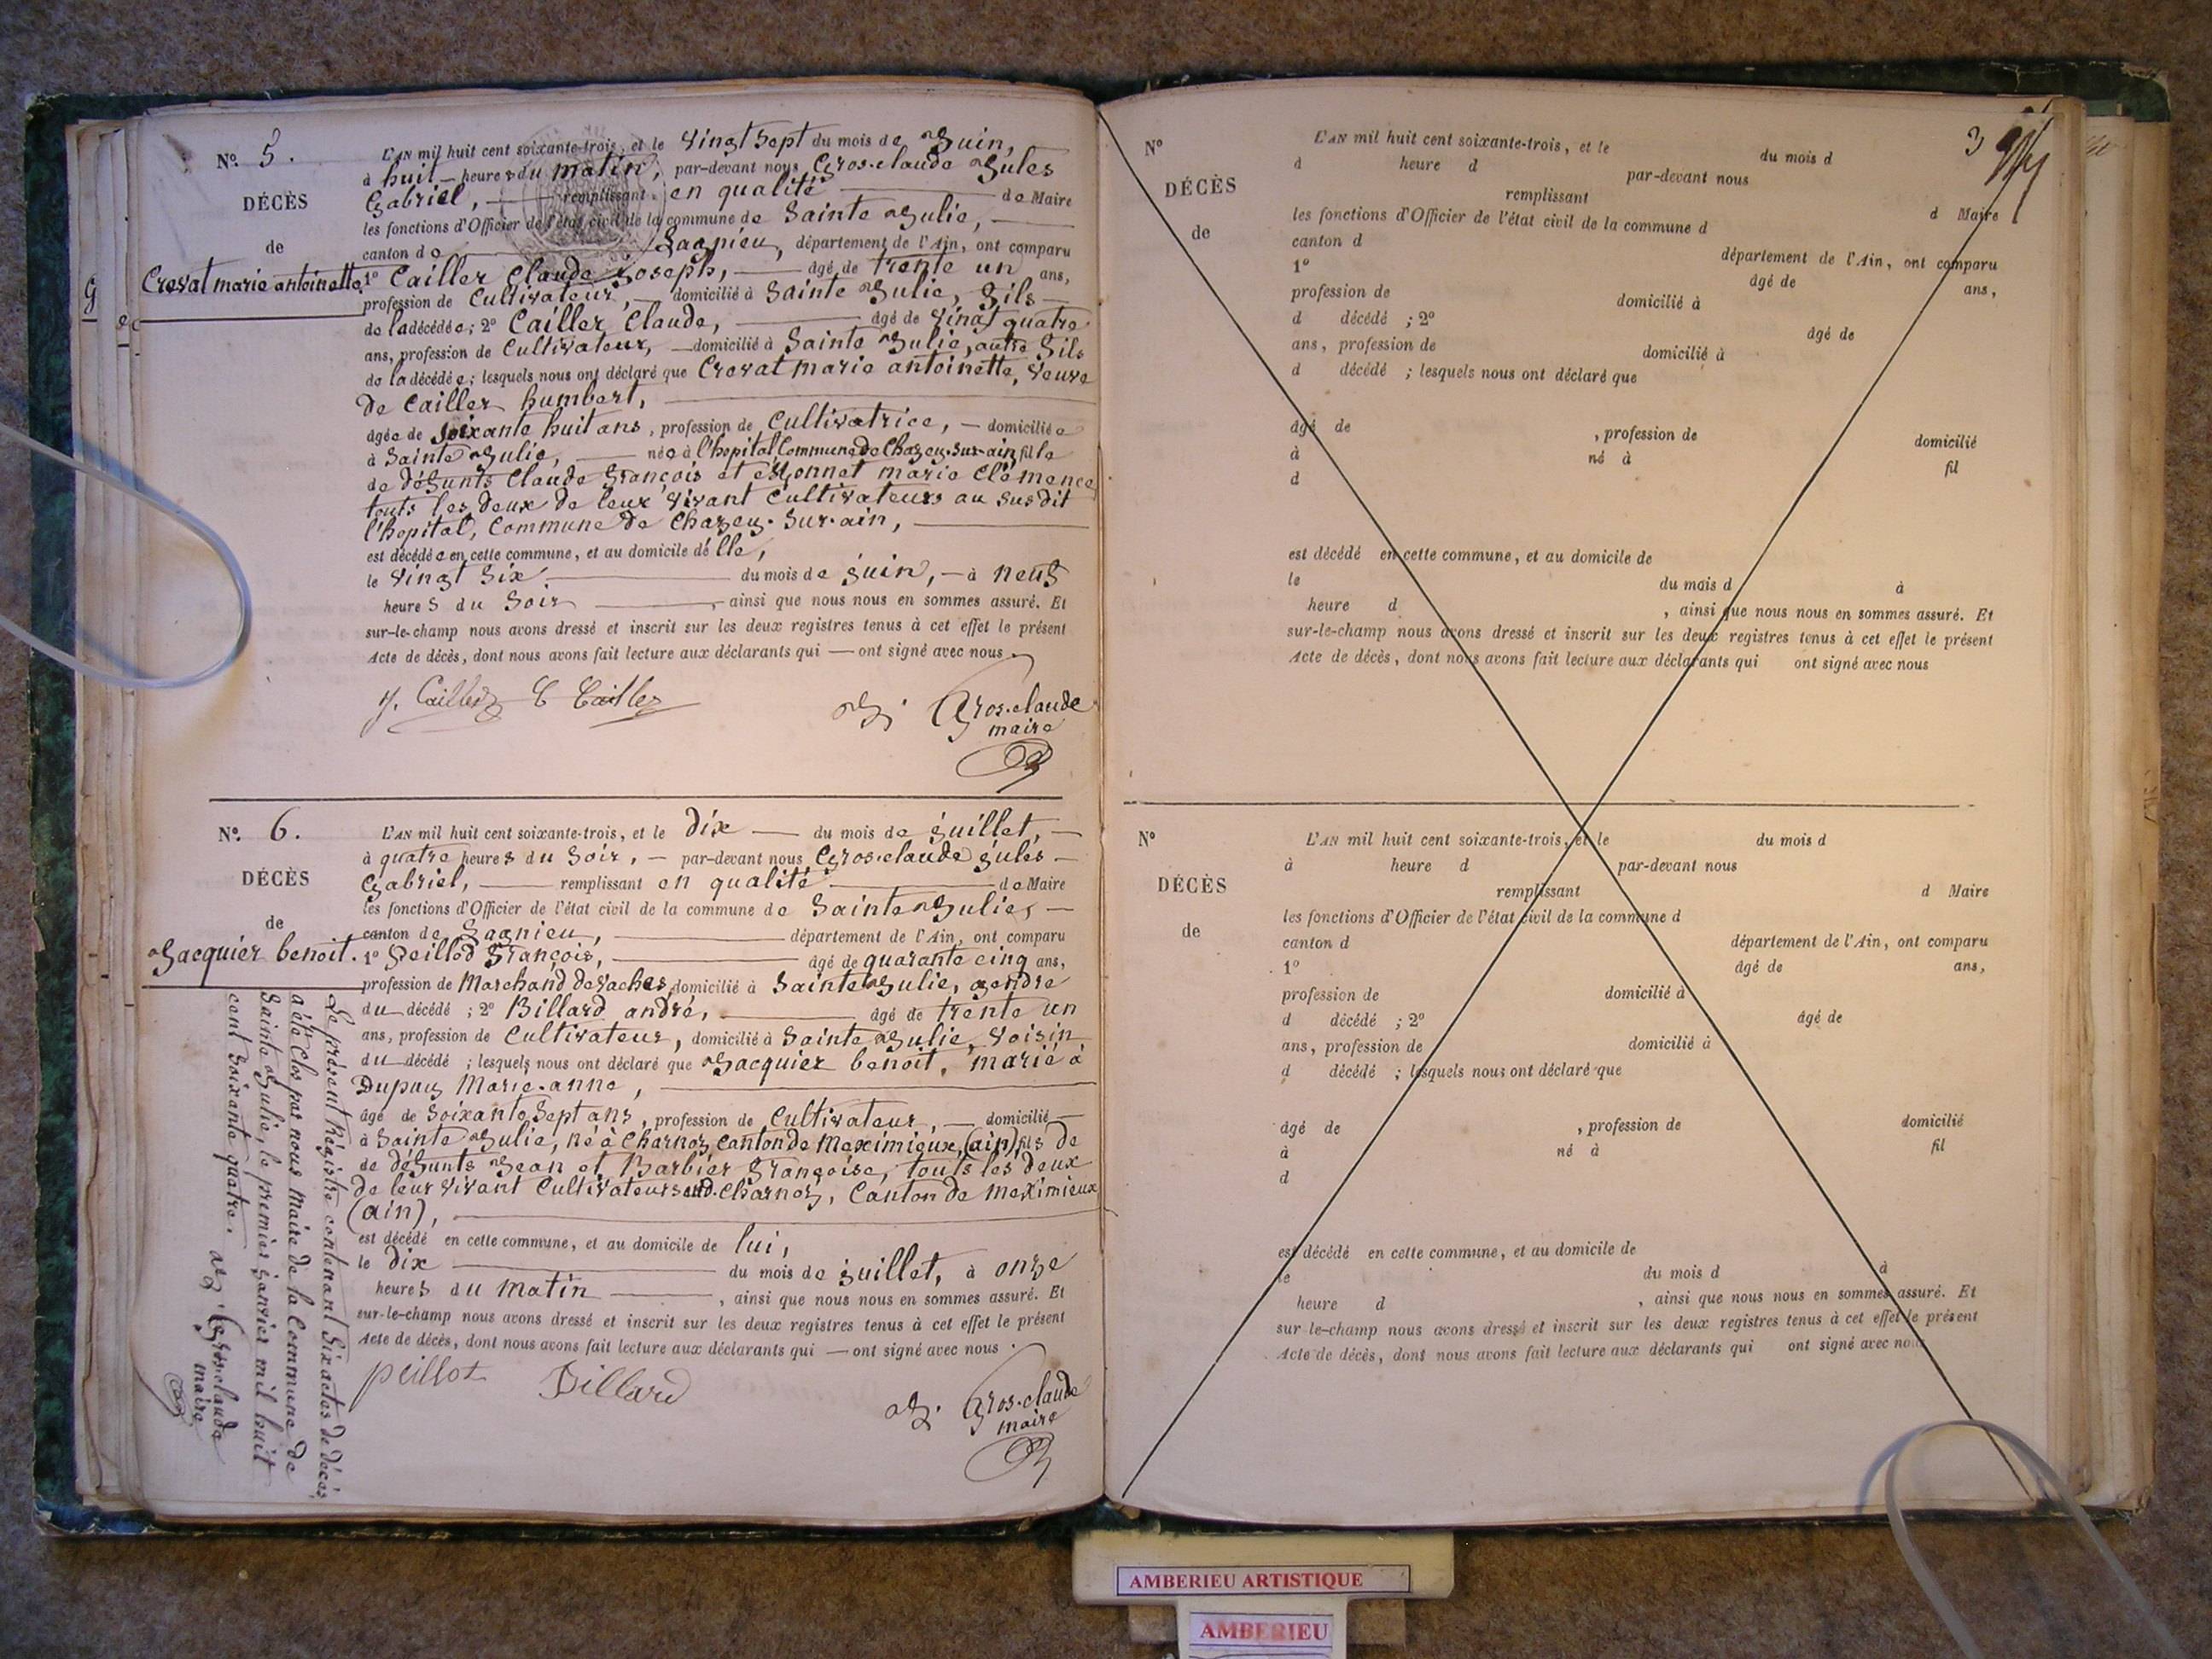 N° 5.
DÉCÈS
de
Crevat marie antoinette
L'AN mil huit cent soixante-trois, et le vingt sept du mois de Juin,
à huit heures du matin, par-devant nous Gros-claude Jules
Gabriel, remplissant en qualité de Maire
les fonctions d'Officier de l'état civil de la commune de Sainte Julie,
canton de Lagnieu, département de l'Ain, ont comparu
1° Cailler Claude Joseph, âgé de trente un ans,
profession de Cultivateur, domicilié à Sainte Julie, fils
de la décédée; 2° Cailler Claude, âgé de vingt quatre
ans, profession de Cultivateur, domicilié à Sainte Julie, autre fils
de la décédée; lesquels nous ont déclaré que Crevat marie antoinette, veuve
de Cailler humbert,
âgée de soixante huit ans, profession de Cultivatrice, domiciliée
à Sainte Julie, née à l'hopital Commune de Chazey-Sur-ain fille
de défunts Claude François et marie Clémence
touts les deux de leur vivant Cultivateurs au susdit
l'hopital, Commune de Chazey-Sur-ain,
est décédée en cette commune, et au domicile d'elle,
le vingt six du mois de juin, à neuf
heures du soir, ainsi que nous nous en sommes assuré. Et
sur-le-champ nous avons dressé et inscrit sur les deux registres tenus à cet effet le présent
Acte de décès, dont nous avons fait lecture aux déclarants qui ont signé avec nous.
J. Cailler C Cailler
J. Gros-claude
maire
N° 6.
DÉCÈS
de
Jacquier benoit.
L'AN mil huit cent soixante-trois, et le dix du mois de juillet,
à quatre heures du soir, par-devant nous Gros-claude jules
Gabriel, remplissant en qualité de Maire
les fonctions d'Officier de l'état civil de la commune de Sainte Julie,
canton de Lagnieu, département de l'Ain, ont comparu
1° Peillod François, âgé de quarante cinq ans,
profession de Marchand de vaches, domicilié à Sainte Julie, gendre
du décédé; 2° Billard andré, âgé de trente un
ans, profession de Cultivateur, domicilié à Sainte Julie, voisin
du décédé; lesquels nous ont déclaré que Jacquier benoit, marié à
Dupuy Marie-anne,
âgé de soixante sept ans, profession de Cultivateur, domicilié
à Sainte Julie, né à Charnoz canton de Meximieux, (ain) fils de
de défunts Jean et Barbier Françoise, touts les deux
de leur vivant Cultivateurs aud. Charnoz, Canton de Meximieux
(ain),
est décédé en cette commune, et au domicile de lui,
le dix du mois de juillet, à onze
heures du matin, ainsi que nous nous en sommes assuré. Et
sur-le-champ nous avons dressé et inscrit sur les deux registres tenus à cet effet le présent
Acte de décès, dont nous avons fait lecture aux déclarants qui ont signé avec nous.
peillot Billard
J. Gros-claude
maire
Le présent Registre contenant six actes de décès,
a été clos par nous Maire de la Commune de
Sainte Julie, le premier janvier mil huit
cent soixante quatre.
J. Gros-claude
maire
3
N°
DÉCÈS
de
L'AN mil huit cent soixante-trois, et le du mois d
à heure d par-devant nous
remplissant d Maire
les fonctions d'Officier de l'état civil de la commune d
canton d département de l'Ain, ont comparu
1° âgé de ans,
profession de domicilié à
d décédé ; 2° âgé de
ans, profession de domicilié à
d décédé ; lesquels nous ont déclaré que
âgé de , profession de domicilié
à né à fil
d
est décédé en cette commune, et au domicile de
le du mois d à
heure d , ainsi que nous nous en sommes assuré. Et
sur-le-champ nous avons dressé et inscrit sur les deux registres tenus à cet effet le présent
Acte de décès, dont nous avons fait lecture aux déclarants qui ont signé avec nous
N°
DÉCÈS
de
L'AN mil huit cent soixante-trois, et le du mois d
à heure d par-devant nous
remplissant d Maire
les fonctions d'Officier de l'état civil de la commune d
canton d département de l'Ain, ont comparu
1° âgé de ans,
profession de domicilié à
d décédé ; 2° âgé de
ans, profession de domicilié à
d décédé ; lesquels nous ont déclaré que
âgé de , profession de domicilié
à né à fil
d
est décédé en cette commune, et au domicile de
le du mois d à
heure d , ainsi que nous nous en sommes assuré. Et
sur-le-champ nous avons dressé et inscrit sur les deux registres tenus à cet effet le présent
Acte de décès, dont nous avons fait lecture aux déclarants qui ont signé avec nous
AMBERIEU ARTISTIQUE
AMBERIEU